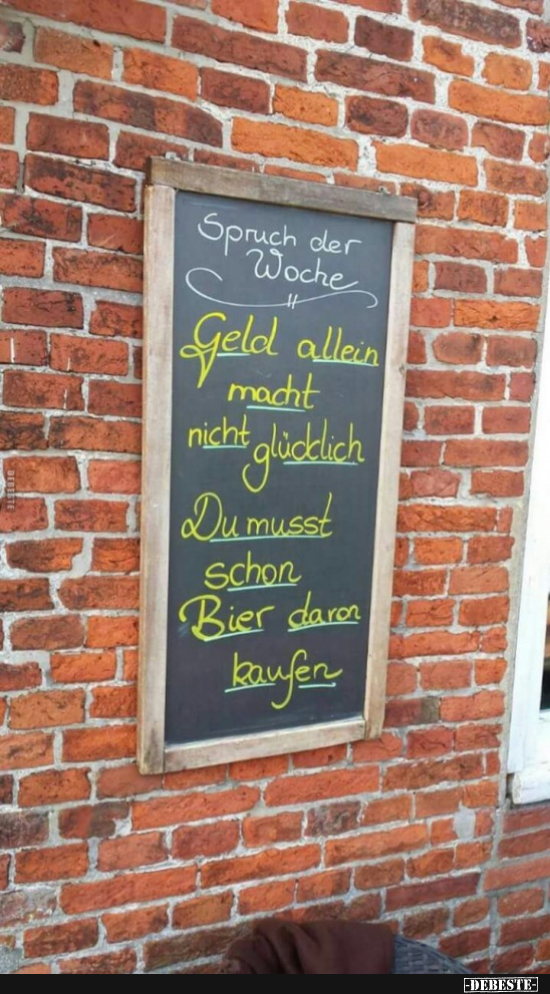 Spruch der
Woche
Geld allein
macht
nicht glücklich
Du musst
schon
Bier davon
kaufen
DEBESTE
-DEBESTE-